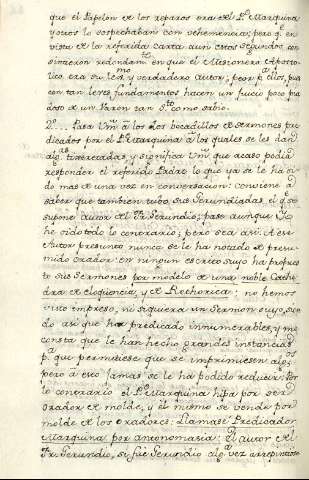 que el Papelon de los reparos era del P.e Marquina
y otros lo sospechaban con vehemencia; pero q.e en
vista de la referida carta aun estos segundos con
sintieron redondam.te en que el Misionero Aposto-
lico era su lex.mo y verdadero autor; peor p.a ellos, pues
con tan leves fundamentos hacen un juicio poco pia
doso de un Varon tan S.to como sabio.
2... Pasa Vm.d à los dos bocadillos de sermones pre
dicados por el P.e Marquina à los quales se les dan
alg.as tixeretadas, y significa Vm.d que acaso podia
responder el referido Padre lo que ya se le ha oi
do mas de una vez en conversacion: conviene à
saber que tambien tubo sus Gerundiadas el q.e se
supone autor del Fr. Gerundio; pase aunque Yo
he oido todo lo contrario, pero sea asi: A ese
Autor presunto nunca se le ha notado de presu
mido Orador: en ningun escrito suyo ha propues
to sus Sermones por modelo de una noble Cathe
dra de eloquencia, y de Rethorica: no hemos
visto impreso, ni siquiera un Sermon suyo, sien
do asi que ha predicado innumerables, y me
consta que le han hecho grandes instancias
p.a que permitiese que se imprimiesen alg.os
pero à eso jamas se le ha podido reducir: Por
lo contrario el P.e Marquina hipa por ser
Orador de molde, y el mismo se vende por
molde de los oradores: Llamase Predicador
Marquina por antonomasia: El autor del
Fr. Gerundio, si fue Gerundio alg.a vez arrepintiose